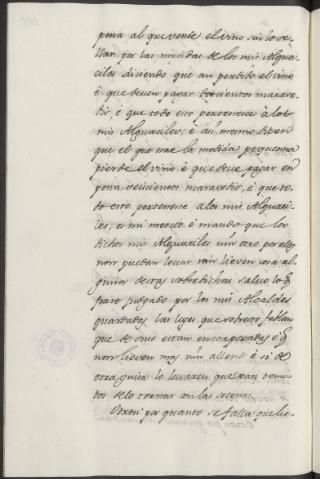 pena al que vende el vino sin lo se-
llar por las medidas de los mis Algua-
ciles diciendo que an perdido el vino
é que deven pagar trecientos marave-
dis, é que todo esto pertenence á los
mis Alguaciles, é asi mesmo dicen
que el que trae la medida pequenna
pierde el vino é que deve pagar en
pena seiscientos maravedis, é que to-
do esto pertenence á los mis Alguaci-
les, es mi merced é mando que los
dichos mis Alguaciles nin otro por ellos
non puedan levar nin lieven cosa al-
guna de esas sobredichas salvo lo q.
fuere judgado por los mis Alcaldes
guardadas las leyes que sobresto fablan
que de suso estan encorporadas é q.
non lieven mas nin allende é si de
otra guisa lo levaren que sean tenu-
dos de lo tornar con las setenas.
Otrosi por quanto se falla que lie-